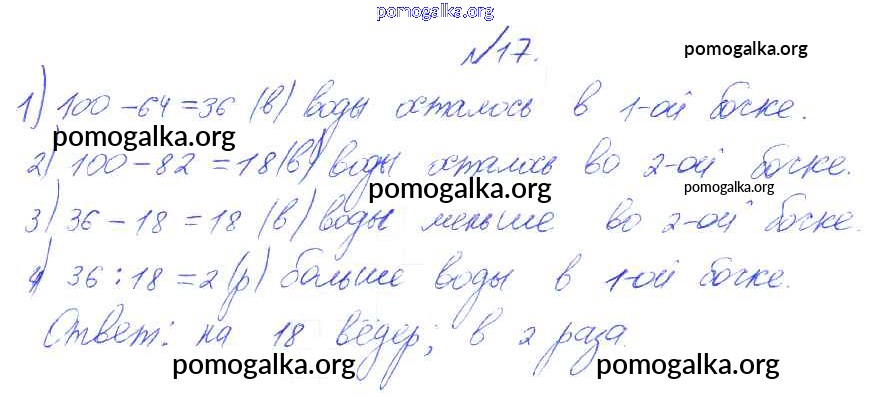 pomogalka.org
№17.
pomogalka.org
1) 100-64=36 (в) воды осталось в 1-ой бочке.
pomogalka.org
2) 100-82=18(в) воды осталось во 2-ой бочке.
pomogalka.org pomogalka.org
3) 36-18=18 (в) воды меньше во 2-ой бочке.
4) 36:18=2(р) больше воды в 1-ой бочке.
Ответ: на 18 вёдер; в 2 раза.
pomogalka.org pomogalka.org